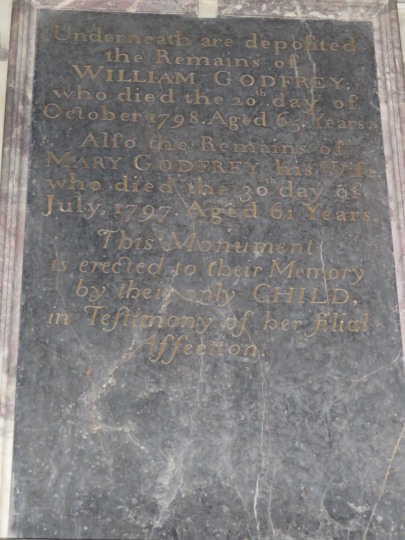 Underneath are deposited
the Remains of
WILLIAM GODFREY,
who died the 20th day of
October 1798. Aged 65. Years.
Also the Remains of
MARY GODFREY his Wife
who died the 30th day of
July, 1797. Aged 61 Years.
This Monument
is erected to their Memory
by their only CHILD,
in Testimony of her filial
Affection.